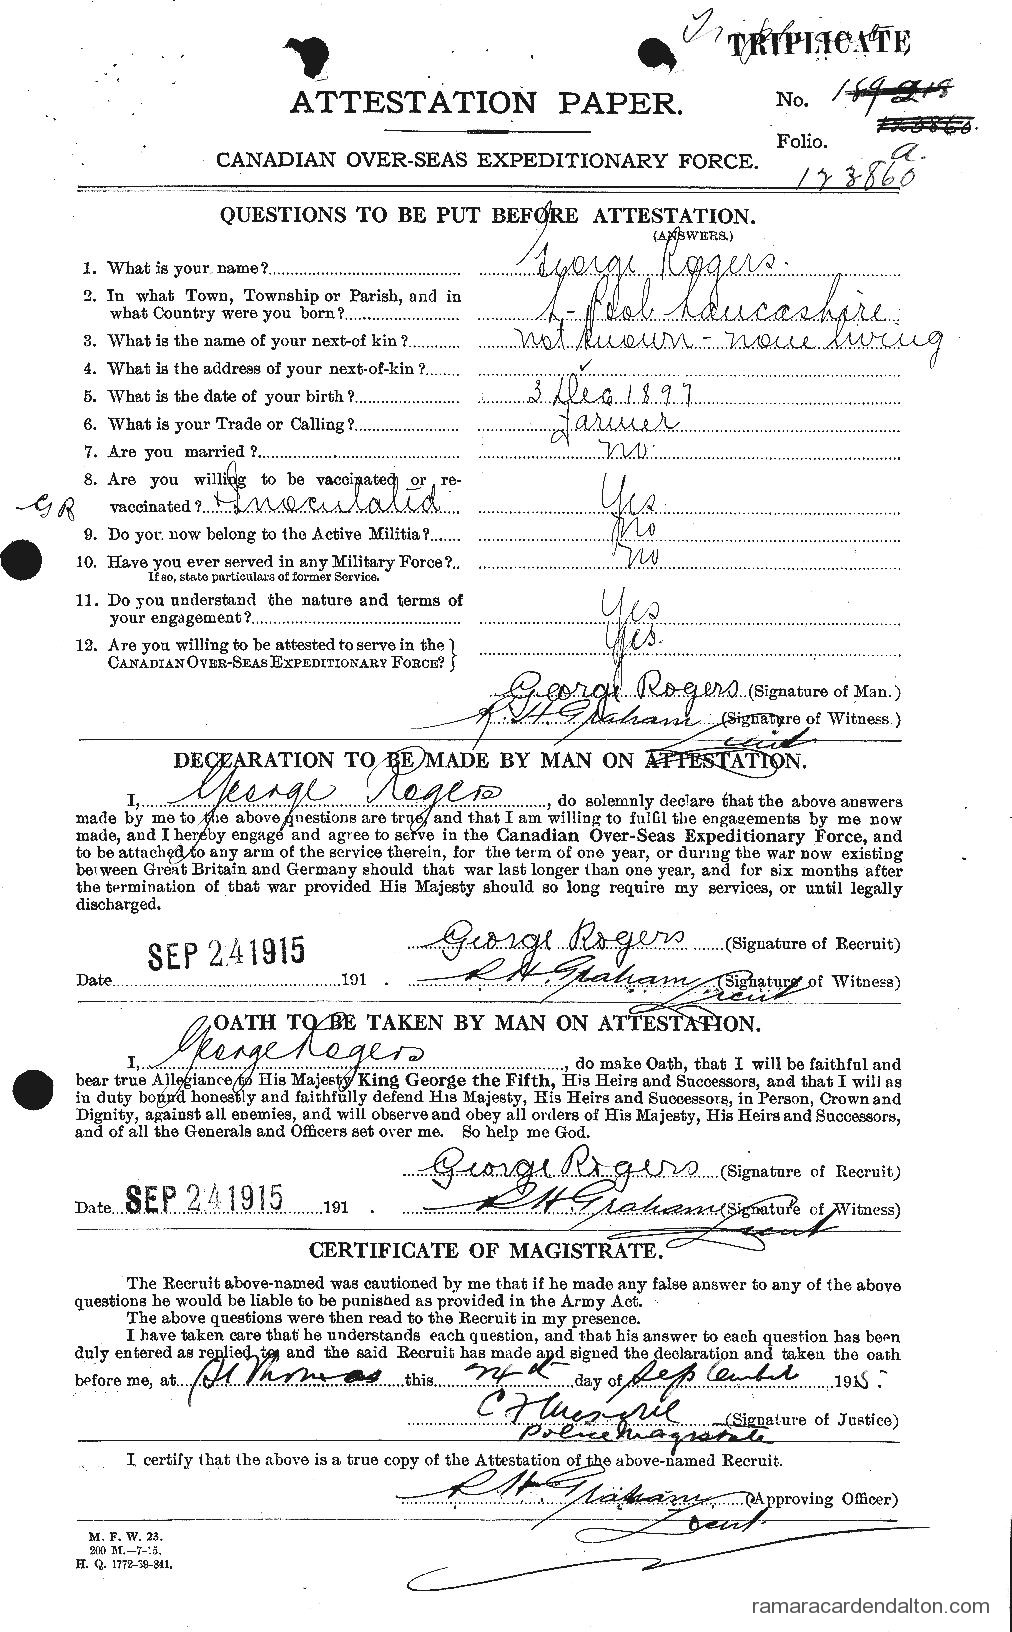 Triplicate
TRIPLICATE
ATTESTATION PAPER.
No. 189218
123860
Folio.
a.
123860
CANADIAN OVER-SEAS EXPEDITIONARY FORCE.
QUESTIONS TO BE PUT BEFORE ATTESTATION.
(ANSWERS.)
1. What is your name? George Rogers.
2. In what Town, Township or Parish, and in
what Country were you born? L-Pool Lancashire
3. What is the name of your next-of kin? not known - none living
4. What is the address of your next-of-kin? ✓
5. What is the date of your birth? 3 Dec 1897
6. What is your Trade or Calling? Farmer
7. Are you married? no.
8. Are you willing to be vaccinated or re-
GR vaccinated? + Inoculated Yes
9. Do you now belong to the Active Militia? No
10. Have you ever served in any Military Force? No
If so, state particulars of former Service.
11. Do you understand the nature and terms of
your engagement? Yes
12. Are you willing to be attested to serve in the
CANADIAN OVER-SEAS EXPEDITIONARY FORCE? Yes.
George Rogers (Signature of Man.)
R H Graham (Signature of Witness)
Lieut
DECLARATION TO BE MADE BY MAN ON ATTESTATION.
I, George Rogers, do solemnly declare that the above answers
made by me to the above questions are true, and that I am willing to fulfil the engagements by me now
made, and I hereby engage and agree to serve in the Canadian Over-Seas Expeditionary Force, and
to be attached to any arm of the service therein, for the term of one year, or during the war now existing
between Great Britain and Germany should that war last longer than one year, and for six months after
the termination of that war provided His Majesty should so long require my services, or until legally
discharged.
George Rogers (Signature of Recruit)
SEP 24 1915
Date 191 . R H Graham Lieut (Signature of Witness)
OATH TO BE TAKEN BY MAN ON ATTESTATION.
I, George Rogers, do make Oath, that I will be faithful and
bear true Allegiance to His Majesty King George the Fifth, His Heirs and Successors, and that I will as
in duty bound honestly and faithfully defend His Majesty, His Heirs and Successors, in Person, Crown and
Dignity, against all enemies, and will observe and obey all orders of His Majesty, His Heirs and Successors,
and of all the Generals and Officers set over me. So help me God.
George Rogers (Signature of Recruit)
Date SEP 24 1915 191 . R H Graham Lieut (Signature of Witness)
CERTIFICATE OF MAGISTRATE.
The Recruit above-named was cautioned by me that if he made any false answer to any of the above
questions he would be liable to be punished as provided in the Army Act.
The above questions were then read to the Recruit in my presence.
I have taken care that he understands each question, and that his answer to each question has been
duly entered as replied to, and the said Recruit has made and signed the declaration and taken the oath
before me, at St Thomas this 24th day of September 1915.
C F (Signature of Justice)
Police Magistrate
I certify that the above is a true copy of the Attestation of the above-named Recruit.
R H Graham (Approving Officer)
Lieut.
M. F. W. 23.
200 M.—7-15.
H. Q. 1772-39-841.
ramaracardendalton.com